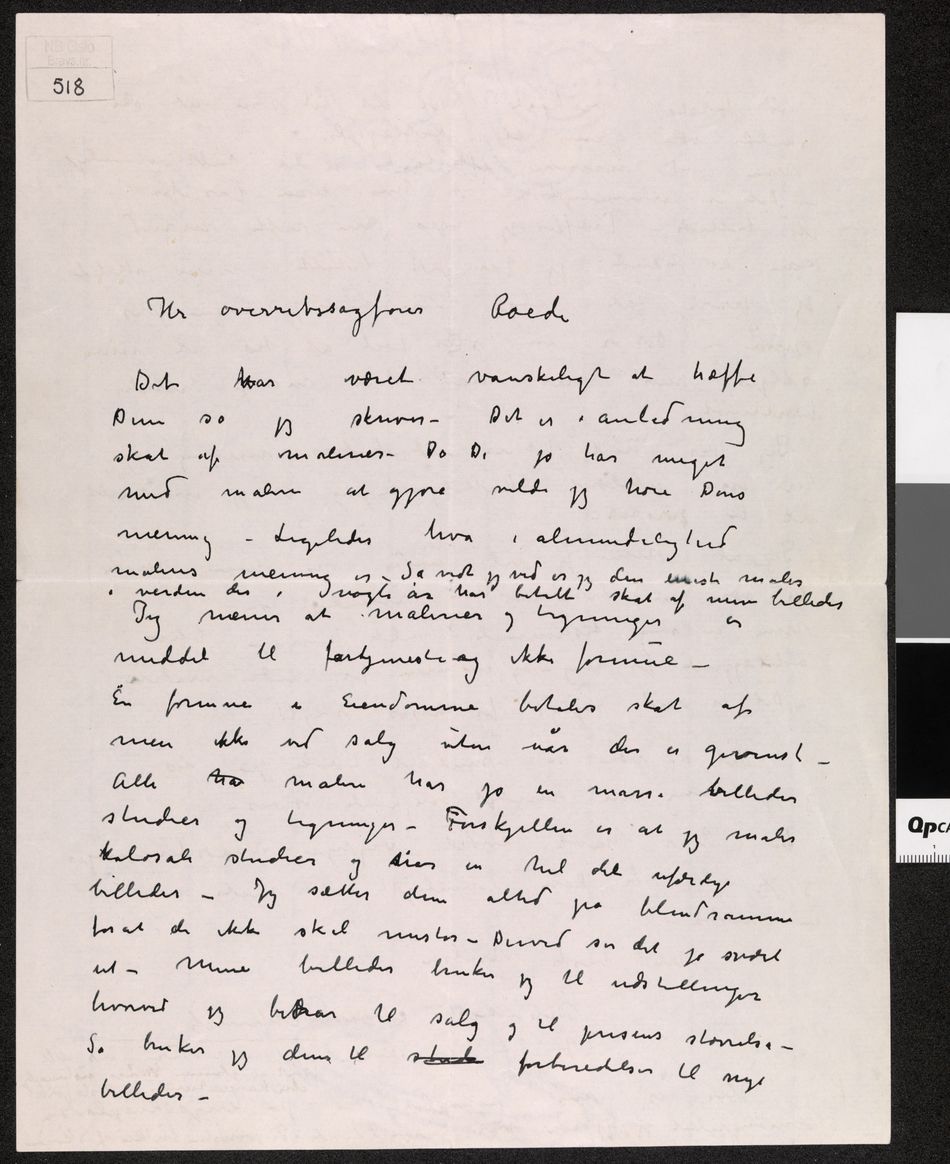 NB Oslo
Brevs.nr.
518
Hr overretssagfører Roede
Det har været vanskeligt at træffe
Dem så jeg skriver – Det er i anledning
skat af malerier – Da De jo har meget
med malere at gjøre vilde jeg høre Deres
mening – Ligeledes hva i almindelighed
maleres mening er – Så vidt jeg ved er jeg den eneste maler
i verden der i nogle år har betalt skat af mine billeder
Jeg mener at malerier og tegninger er
middel til fortjeneste og ikke formue –
En formue i Eiendomme betales skat af
men ikke ved salg uten når der er gevinst –
Alle ha malere har jo en masse billeder
studier og tegninger – Forskjellen er at jeg maler
kolosale studier og har en hel del ufærdige
billeder – Jeg sætter dem altid på blendramme
forat de ikke skal mistes – Derved ser det jo svært
ut – Mine billeder bruker jeg til udstillinger
hvorved jeg bidrar til salg og til prisens størrelse –
Så bruker jeg dem til forberedelser til nye
billeder –
QpCA